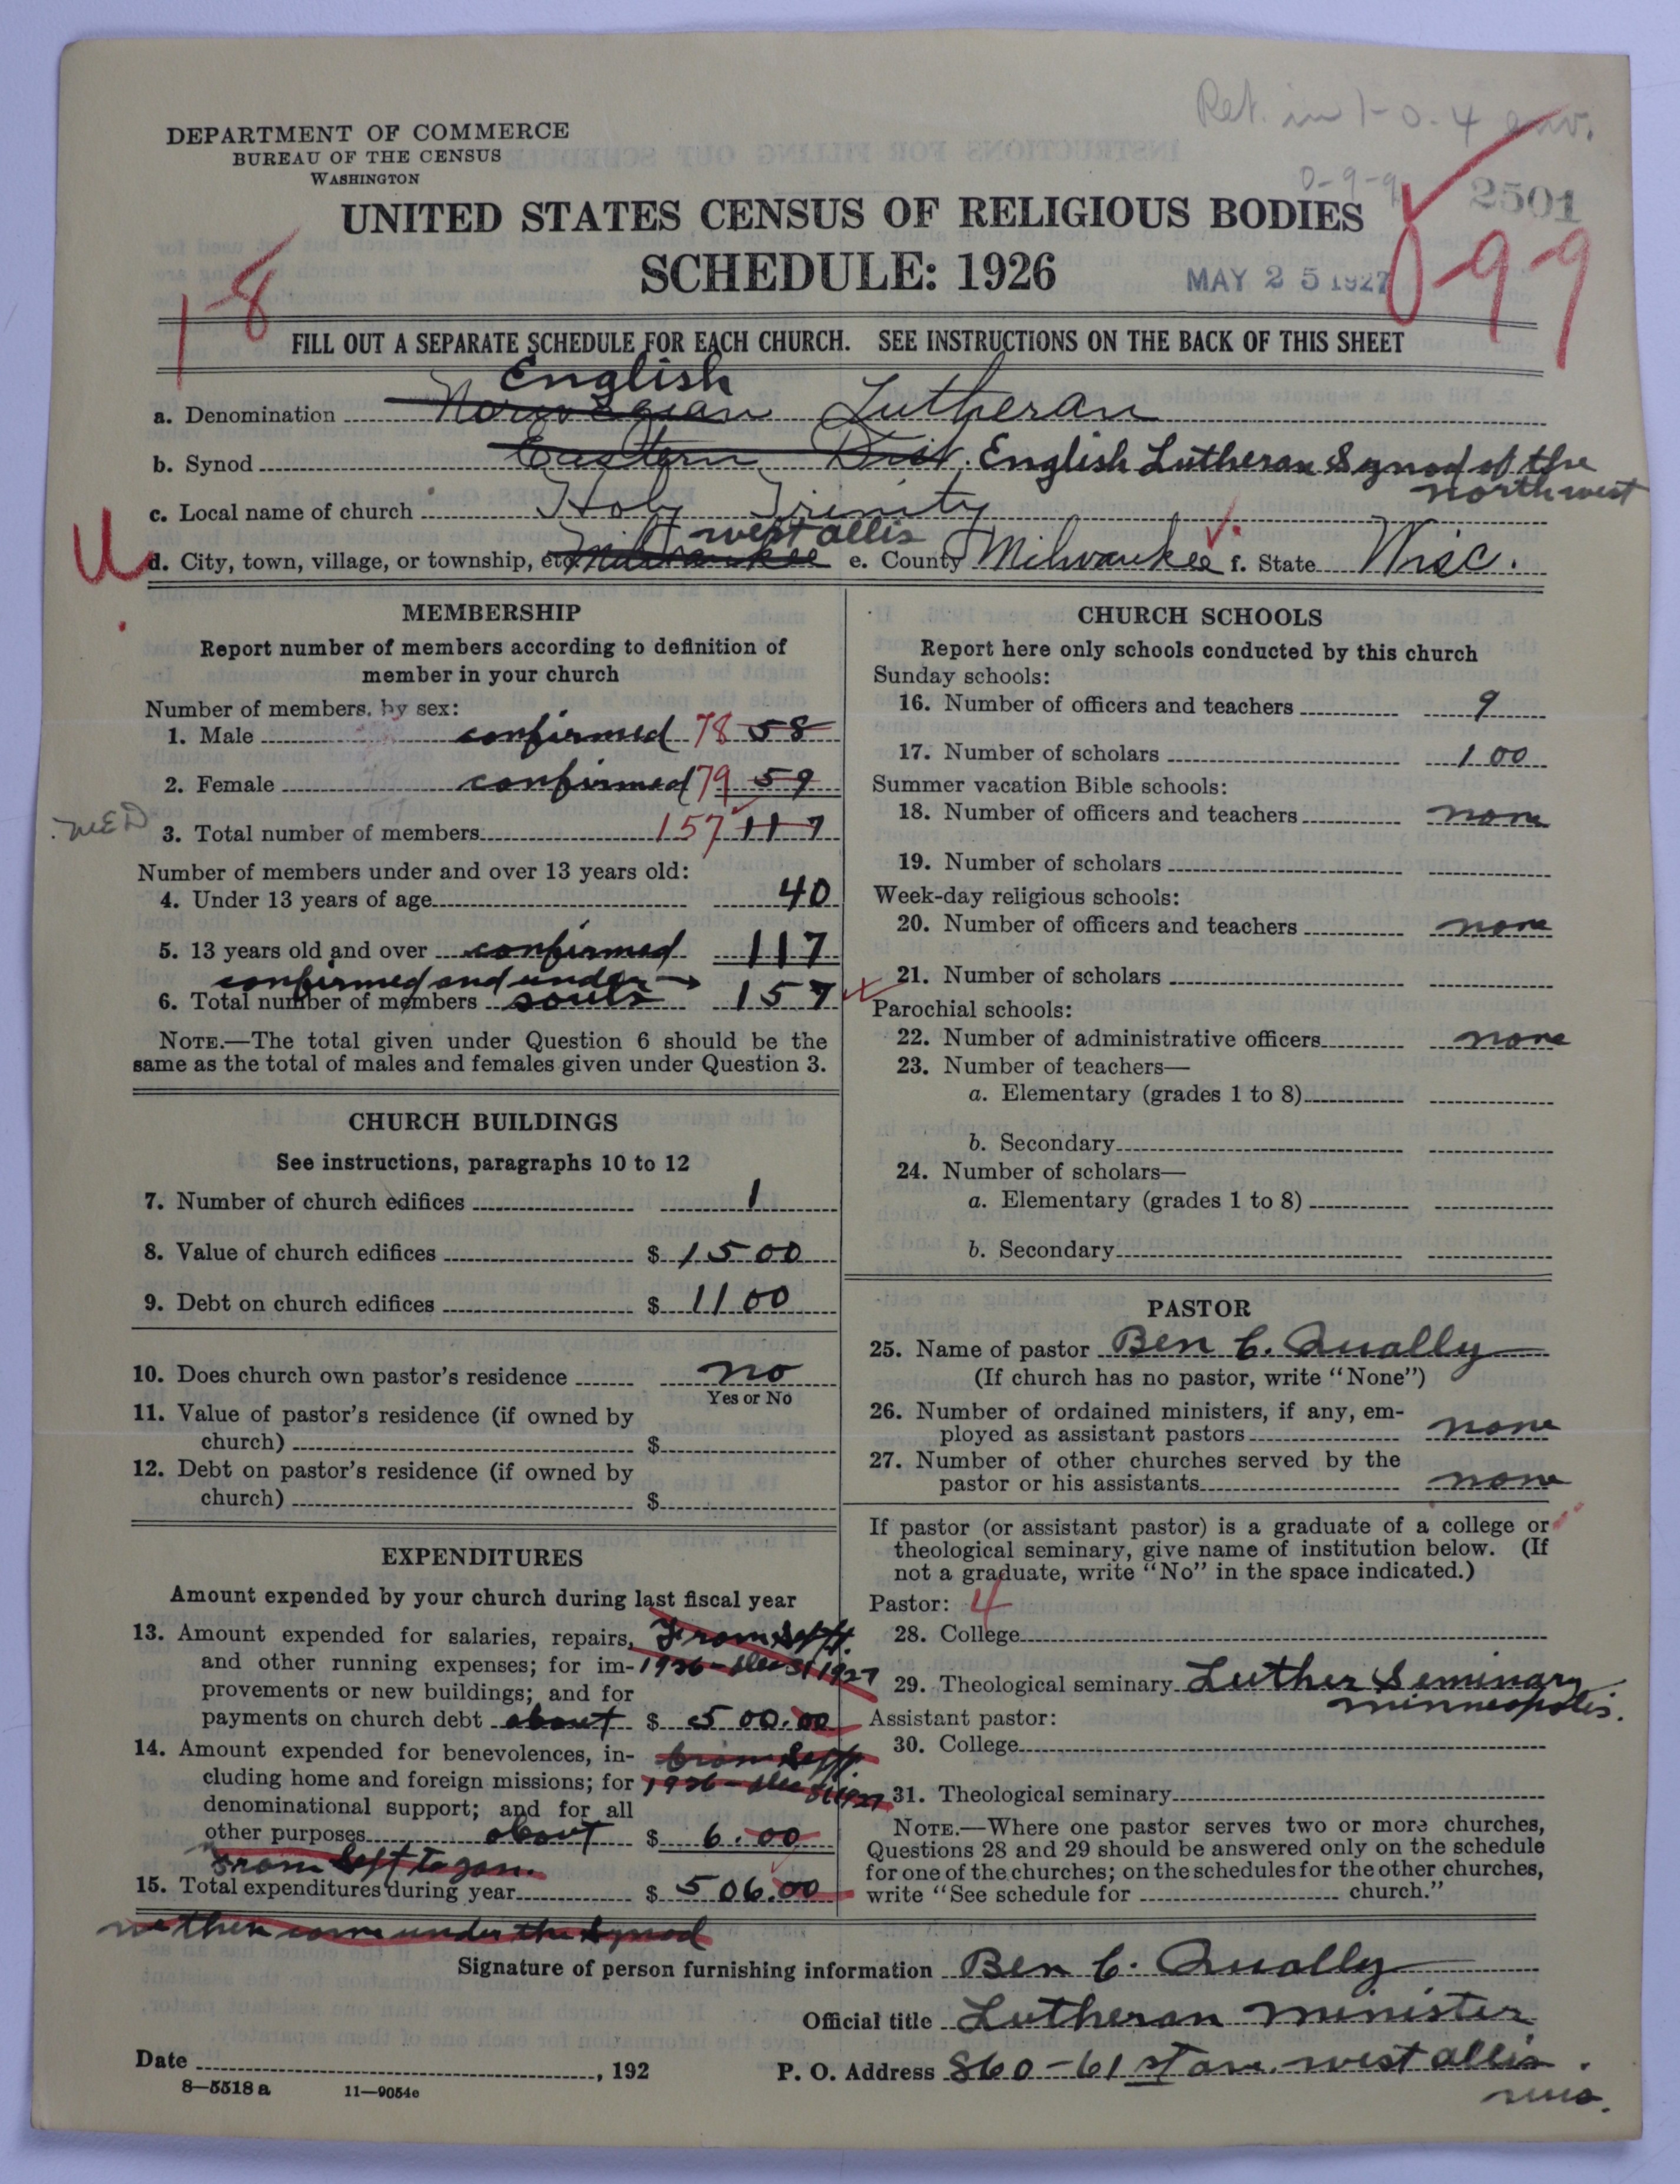 Ret. in 1-0-4 env.
DEPARTMENT OF COMMERCE
BUREAU OF THE CENSUS
WASHINGTON
0-9-9
2501
UNITED STATES CENSUS OF RELIGIOUS BODIES
SCHEDULE: 1926
MAY 25 1927
0-99
1-8
FILL OUT A SEPARATE SCHEDULE FOR EACH CHURCH. SEE INSTRUCTIONS ON THE BACK OF THIS SHEET
English
a. Denomination Norwegian Lutheran
b. Synod Eastern Dist. English Lutheran Synod of the
northwest
c. Local name of church Holy Trinity
west allis
U d. City, town, village, or township, etc. Milwaukee e. County Milwaukee f. State Wisc.
MEMBERSHIP
Report number of members according to definition of
member in your church
Number of members, by sex:
1. Male confirmed 78 58
2. Female confirmed 79 59
MED
3. Total number of members 157 117
Number of members under and over 13 years old:
4. Under 13 years of age 40
5. 13 years old and over confirmed 117
confirmed and under →
6. Total number of members souls 157
NOTE.—The total given under Question 6 should be the
same as the total of males and females given under Question 3.
CHURCH BUILDINGS
See instructions, paragraphs 10 to 12
7. Number of church edifices 1
8. Value of church edifices $ 1500
9. Debt on church edifices $ 1100
10. Does church own pastor's residence no
Yes or No
11. Value of pastor's residence (if owned by
church) $
12. Debt on pastor's residence (if owned by
church) $
EXPENDITURES
Amount expended by your church during last fiscal year
13. Amount expended for salaries, repairs, From Sept.
and other running expenses; for im- 1926 - Dec 31 1927
provements or new buildings; and for
payments on church debt about $ 500.00
14. Amount expended for benevolences, in- From Sept
cluding home and foreign missions; for 1926 - Dec 31 1927
denominational support; and for all
other purposes about $ 6.00
From Sept to Jan.
15. Total expenditures during year $ 506.00
we then come under the Synod
CHURCH SCHOOLS
Report here only schools conducted by this church
Sunday schools:
16. Number of officers and teachers 9
17. Number of scholars 100
Summer vacation Bible schools:
18. Number of officers and teachers none
19. Number of scholars
Week-day religious schools:
20. Number of officers and teachers none
21. Number of scholars
Parochial schools:
22. Number of administrative officers none
23. Number of teachers—
a. Elementary (grades 1 to 8)
b. Secondary
24. Number of scholars—
a. Elementary (grades 1 to 8)
b. Secondary
PASTOR
25. Name of pastor Ben C. Qually
(If church has no pastor, write "None")
26. Number of ordained ministers, if any, em-
ployed as assistant pastors none
27. Number of other churches served by the
pastor or his assistants none
If pastor (or assistant pastor) is a graduate of a college or
theological seminary, give name of institution below. (If
not a graduate, write "No" in the space indicated.)
Pastor: 4
28. College
29. Theological seminary Luther Seminary
minneapolis.
Assistant pastor:
30. College
31. Theological seminary
NOTE.—Where one pastor serves two or more churches,
Questions 28 and 29 should be answered only on the schedule
for one of the churches; on the schedules for the other churches,
write "See schedule for church."
Signature of person furnishing information Ben C. Qually
Official title Lutheran minister
Date , 192
P. O. Address 860-61 st ave. west allis.
wis.
8—5518 a 11—9054e